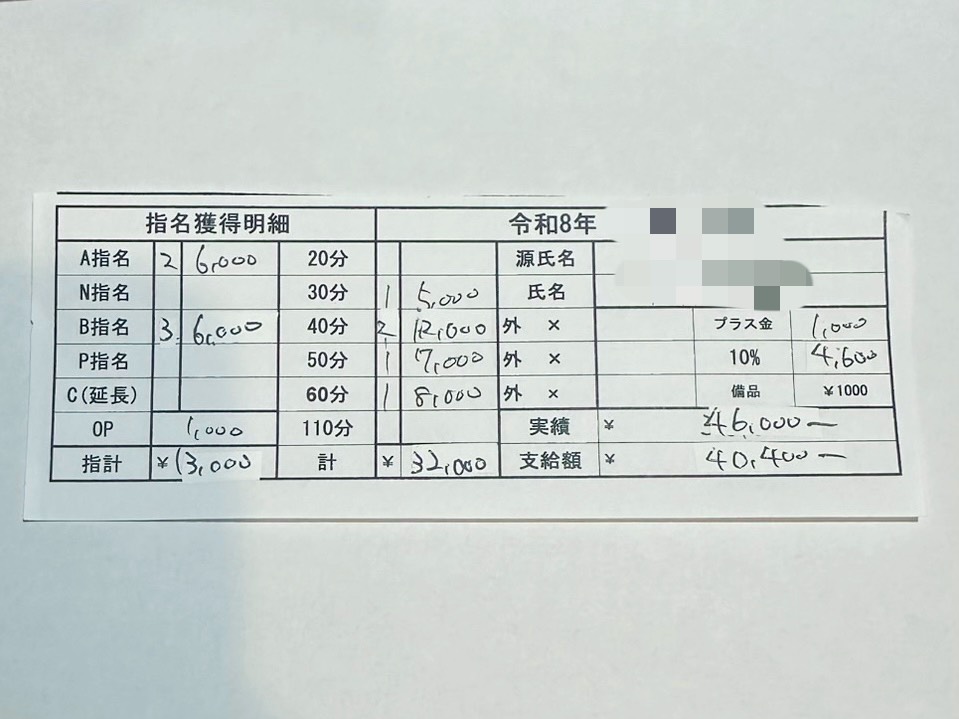 指名獲得明細 令和8年
A指名 2 6,000 20分 源氏名
N指名 30分 1 5,000 氏名
B指名 3 6,000 40分 2 12,000 外 × プラス金 1,000
P指名 50分 1 7,000 外 × 10% 4,600
C(延長) 60分 1 8,000 外 × 備品 ¥1000
OP 1,000 110分 実績 ¥ ¥46,000ー
指計 ¥ 13,000 計 ¥ 32,000 支給額 ¥ 40,400ー